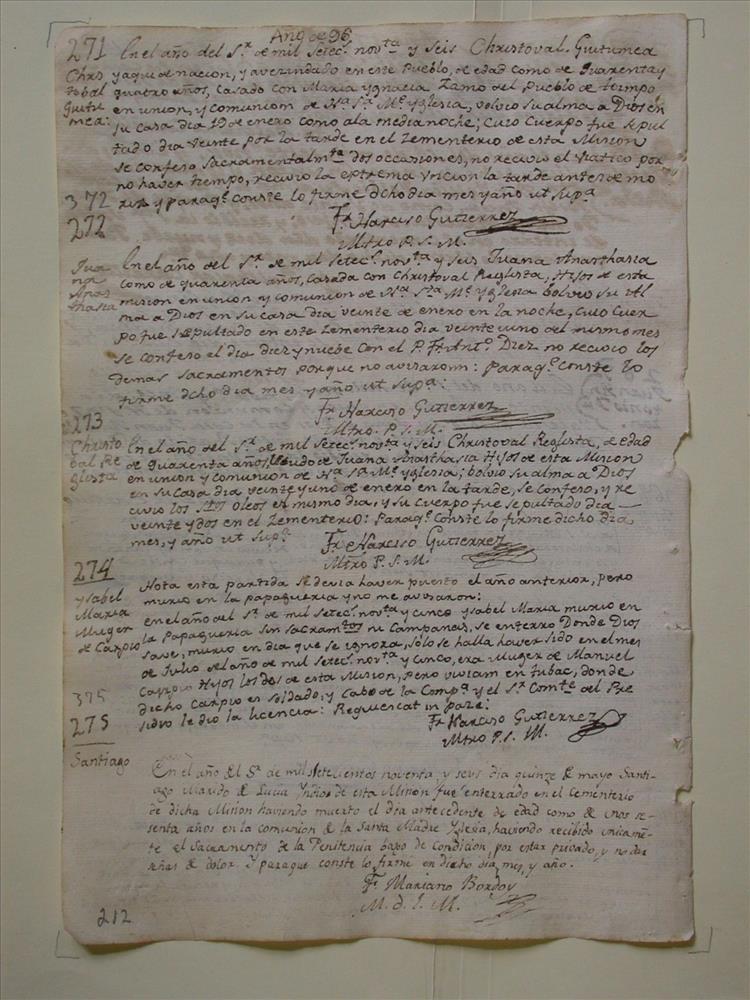 Ano de 96
271 En el año del Sr. de mil setecs. novta y seis Christoval Guitumea
Chris yaqui de nacion, y avezindado en este Pueblo, de edad como de quarenta y
tobal quatro años, casado con Maria Ygnacia Zamo del Pueblo de
Guitu en union, y comunion de Na. Sa. Me. Yglesia, volvio su alma a Dios en
mea: su casa dia 19 de enero como ala media noche; cuio cuerpo fue sepul
tado dia veinte por la tarde en el zementerio de esta Mision
se confeso sacramentalmte. dos occasiones, no recivio el viatico por
no haver tiempo, recivio la extrema uncion la tarde antes de mo
372 rir y paraqe. conste lo firme dicho dia mes y año ut supa.
272 Fr. Narciso Gutierrez
Mtro P. S. M.
Jua En el año del Sr. de mil setecs. novta y seis Juana Anasthasia
na como de quarenta años, casada con Christoval Reglista, Hijos de esta
Anas mision en union y comunion de Na. Sta. Me. Yglesia bolvio su Al
thasia ma a Dios en su casa dia veinte de enero en la noche, cuio cuer
po fue sepultado en este zementerio dia veinte iuno del mismo mes
se confeso el dia diez y nuebe con el P. Fr. Anto. Diez no recivio los
demas sacramentos porque no avisaronn: paraqe. conste lo
firme dcho dia mes y año ut supa:
Fr. Narciso Gutierrez
273 Mtro. P. S. M.
Christo En el año del Sr. de mil setecs. novta y seis Christoval Reglista, de edad
bal Re de quarenta años, Viudo de Juana Anasthasia Hijos de esta Mision
glista en union y comunion de Na. Sa. Me. Yglesia; bolvio su alma a Dios
en su casa dia veinte y uno de enero en la tarde, se confeso, y re
civio los Stos oleos el mismo dia, y su cuerpo fue sepultado dia
veinte y dos en el zementerio: paraqe. conste lo firme dicho dia
mes, y año ut supa. Fr. Narciso Gutierrez
Mtro P. S. M.
274 Nota esta partida se devia haver puesto el año anterior, pero
Ysabel murio en la papagueria y no me avisaron:
Maria en el año del Sr. de mil setecs. novta y cinco Ysabel Maria murio en
Muger la Papagueria sin sacramtos ni campanas, se enterro donde Dios
de Carpio save, murio en dia que se ignora, solo se halla haver sido en el mes
de Julio del año de mil setecs. novta y cinco, era Muger de Manuel
Carpio Hijos los dos de esta Mision, pero vivian en tubac, donde
375 dicho Carpio es soldado, y Cabo de la Compa. y el Sr. Comte. del Pre
275 sidio le dio la licencia: Requiescat in paze:
Fr. Narciso Gutierrez
Mtro P. S. M.
Santiago En el año del Sr. de mil setecientos noventa, y seis dia quinze de mayo Santi-
ago Marido de Lucia Yndios de esta Mision fue enterrado en el Cementerio
de dicha Mision haviendo muerto el dia antecedente de edad como de unos se-
senta años en la comunion de la Santa Madre Yglesia, haviendo recibido unicamen-
te el Sacramento de la Penitencia baxo de condicion, por estar privado, y no dar
señas de dolor. Y paraque conste lo firme en dicho dia, mes, y año.
Fr. Mariano Bordoy
M. d. S. M.
212